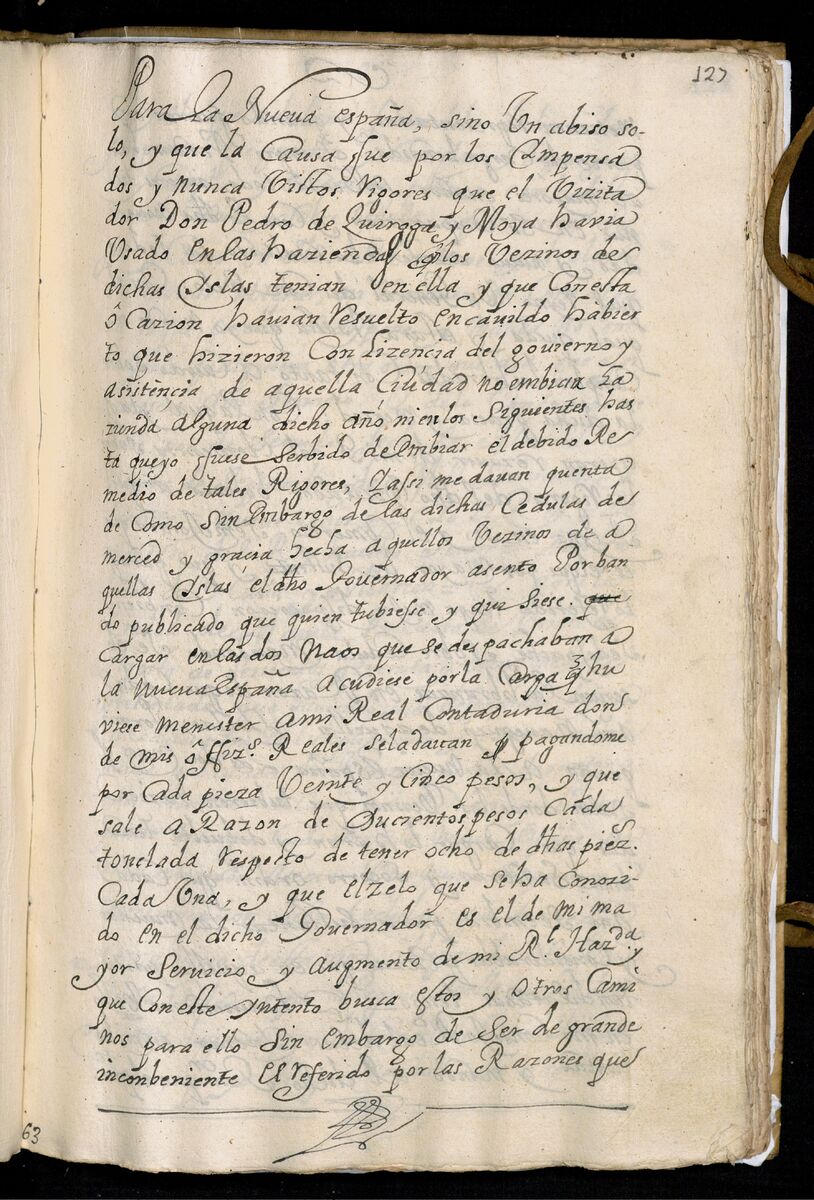 127
Para la Nueva españa, sino Un abiso so-
lo, y que la Causa fue por los Ympensa
dos y nunca Vistos rigores que el Vizita
dor Don Pedro de Quiroga y Moya havia
Usado en las haziendas q̃ los Vezinos de
dichas Yslas tenian en ella y que Con esta
ôcazion havian resuelto en cavildo habier
to que hizieron Con Lizencia del govierno y
asistencia de aquella Ciudad no embiar ha
zienda alguna dicho año, ni en los Siguientes has
ta que yo fuese Serbido de Embiar el debido Re
medio de tales Rigores, Yassi me davan quenta
de Como Sin Embargo de las dichas Cedulas de
merced y gracia hecha a quellos Vezinos de a
quellas Yslas el dho Governador asento Por ban
do publicado que quien tubiesse y qui Siese. que
Cargar en las dos Naos que se des pachaban a
la Nueva España acudiese por la Carga q̃ hu
viese menester ami Real Contaduria don
de mis ôffizs. Reales se la darian pagandome
por Cada pieza Veinte y Cinco pesos, y que
sale a Razon de Ducientos pesos Cada
tonelada respecto de tener ocho de dhas piezs.
Cada Una, y que el zelo que se ha Conozi-
do en el dicho Governador es el de mi ma
yor Servicio y augmento de mi Rl. Hazda. y
que Con este yntento busca estos y otros Cami
nos para ello Sin embargo de Ser de grande
inconbeniente el referido por las Razones que
63